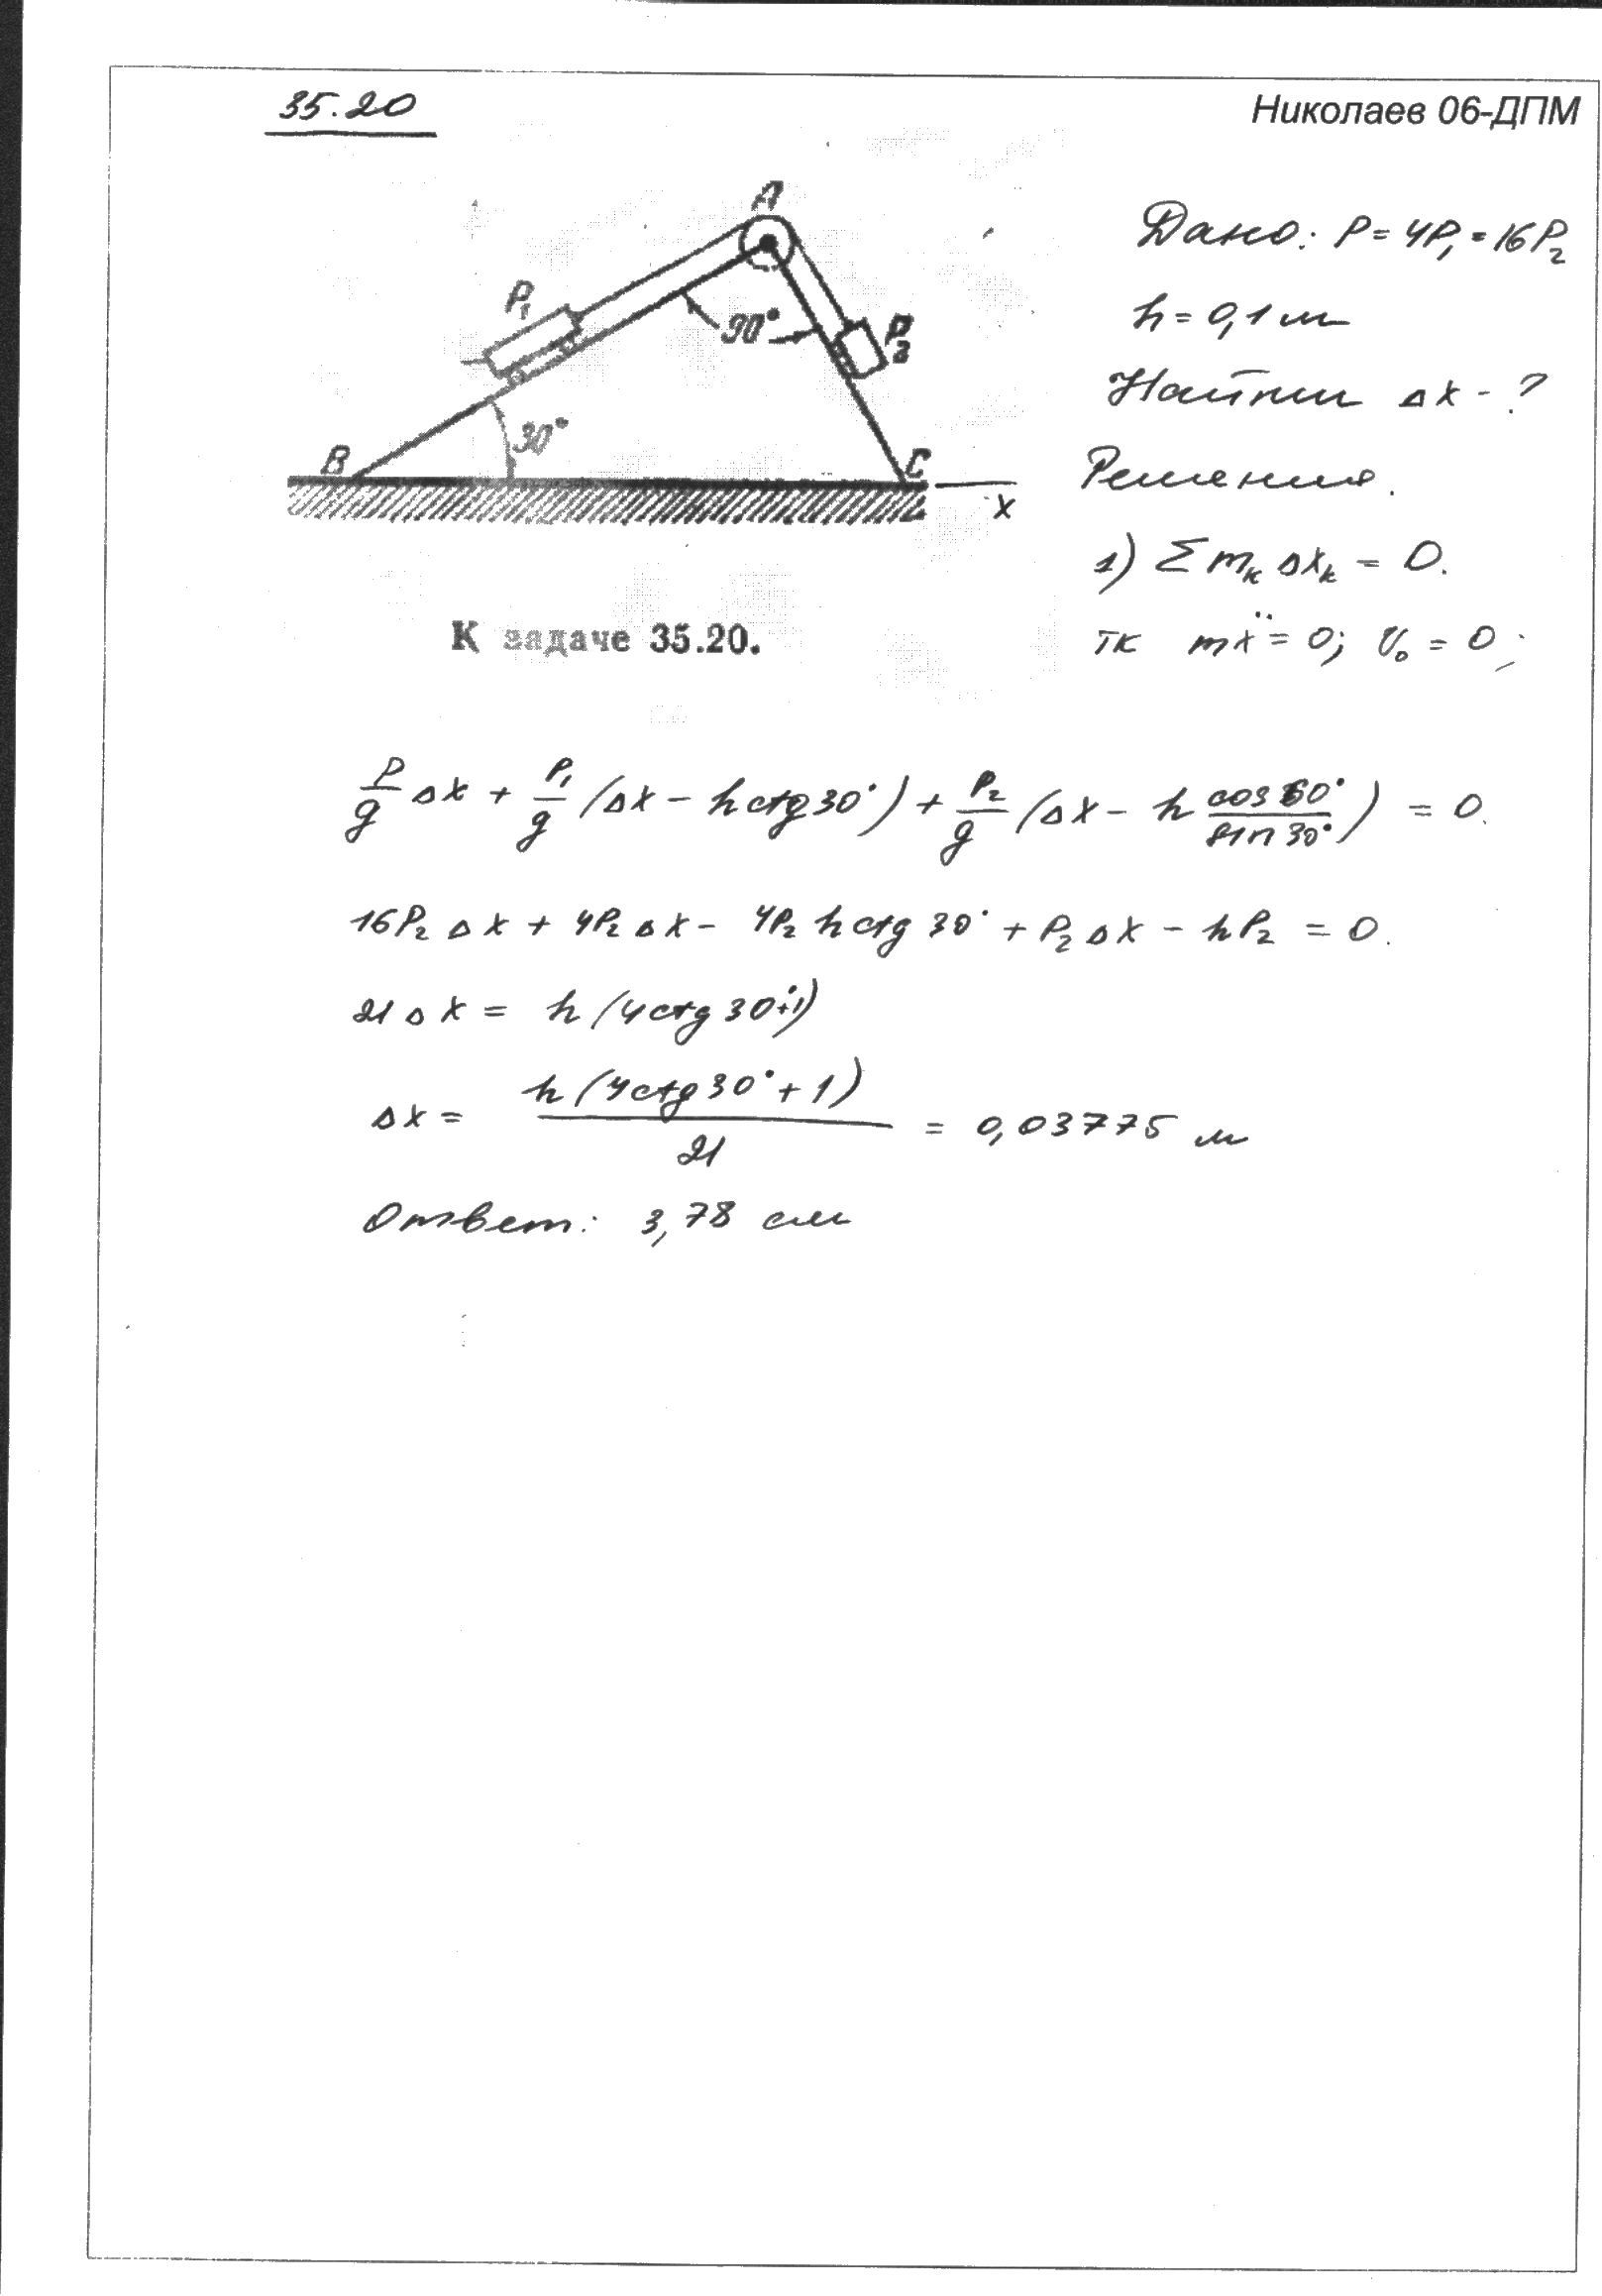 35.20
Николаев 06-ДПМ
A
P₁
90°
P₂
30°
B
C
x
К задаче 35.20.
Дано: P = 4P₁ = 16P₂
h = 0,1 м
Найти Δx - ?
Решения.
1) Σ mₖ Δxₖ = 0.
тк mẍ = 0; V₀ = 0;
P/g Δx + P₁/g (Δx - h ctg 30°) + P₂/g (Δx - h cos 60°/sin 30°) = 0.
16P₂ Δx + 4P₂ Δx - 4P₂ h ctg 30° + P₂ Δx - hP₂ = 0.
21 Δx = h (4ctg 30°+1)
Δx = h (4ctg 30° + 1)/21 = 0,03775 м
Ответ: 3,78 см